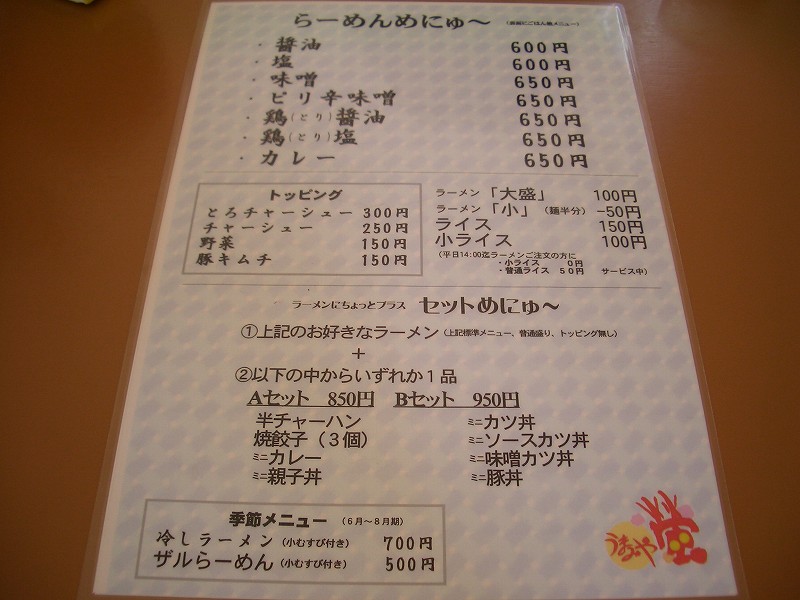 らーめんめにゅ～
・醤油 600円
・塩 600円
・味噌 650円
・ピリ辛味噌 650円
・鶏(とり)醤油 650円
・鶏(とり)塩 650円
・カレー 650円
トッピング
とろチャーシュー 300円
チャーシュー 250円
野菜 150円
豚キムチ 150円
ラーメン「大盛」 100円
ラーメン「小」(麺半分) -50円
ライス 150円
小ライス 100円
(平日14:00迄ラーメンご注文の方に
・小ライス 0円
・普通ライス 50円 サービス中)
ラーメンにちょっとプラス セットめにゅ～
①上記のお好きなラーメン(上記標準メニュー、普通盛り、トッピング無し)
＋
②以下の中からいずれか１品
Aセット 850円 Bセット 950円
半チャーハン ミニカツ丼
焼餃子（３個） ミニソースカツ丼
ミニカレー ミニ味噌カツ丼
ミニ親子丼 ミニ豚丼
季節メニュー (６月～８月期)
冷しラーメン(小むすび付き) 700円
ザルらーめん(小むすび付き) 500円